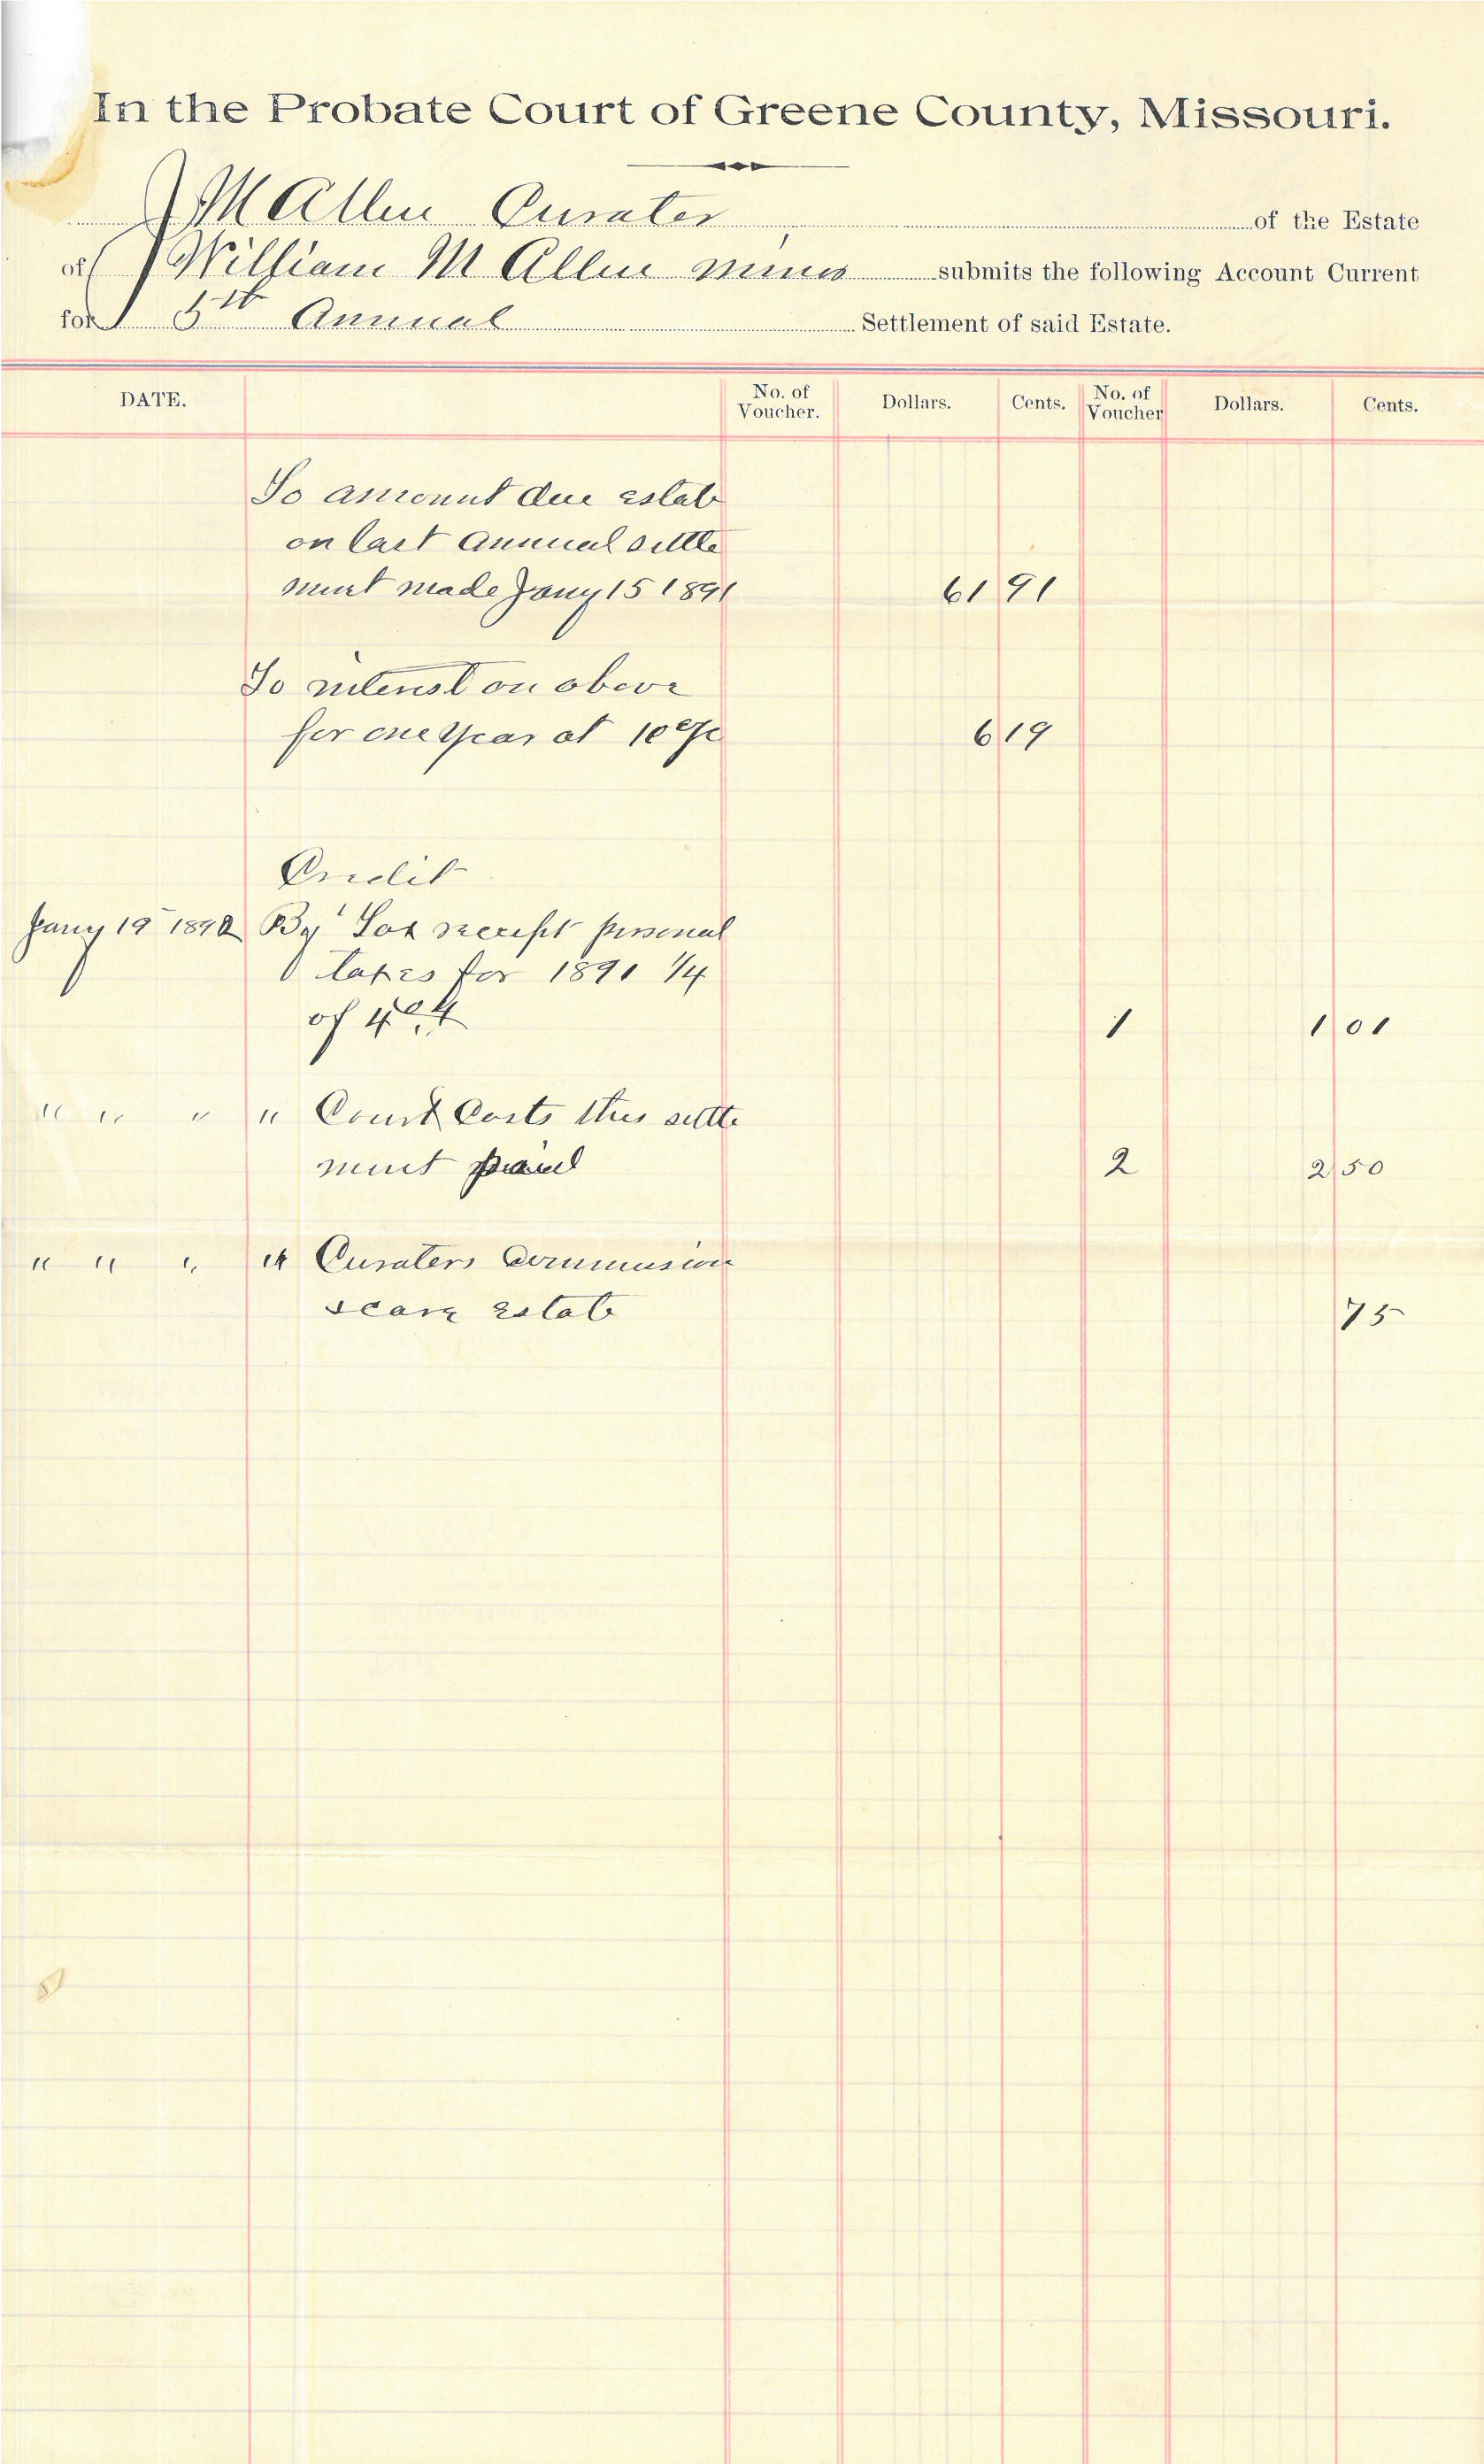 In the Probate Court of Greene County, Missouri.
J M Allen Curator of the Estate
of William M Allen minor submits the following Account Current
for 5th Annual Settlement of said Estate.
DATE. No. of Voucher. Dollars. Cents. No. of Voucher Dollars. Cents.
To amount due estate
on last annual settle
ment made Jany 15 1891 61 91
To interest on above
for one year at 10 % 6 19
Credit
Jany 19 1892 By Tax receipt personal
taxes for 1891 1/4
of 4.04 1 1 01
" " " " Court Costs this settle
ment paid 2 2 50
" " " " Curators Commission
estate 75